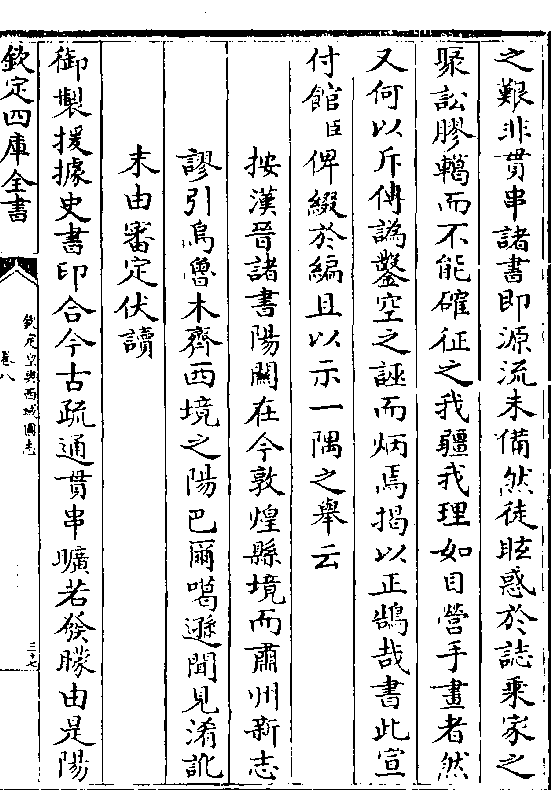 之艱非貫串諸書即源流未備然徒眩惑於誌乘家之
聚訟膠轕而不能確征之我疆我理如目營手畫者然
又何以斥傅譌鑿空之誣而炳焉揭以正鵠哉書此宣
付館臣俾綴於編且以示一隅之舉云
按漢晉諸書陽關在今敦煌縣境而肅州新志
謬引烏魯木齊西境之陽巴爾噶遜聞見淆訛
末由審定伏讀
御製援據史書印合今古疏通貫串曠若發矇由是陽
欽定四庫全書
欽定皇輿西域圖志
卷八
三十七